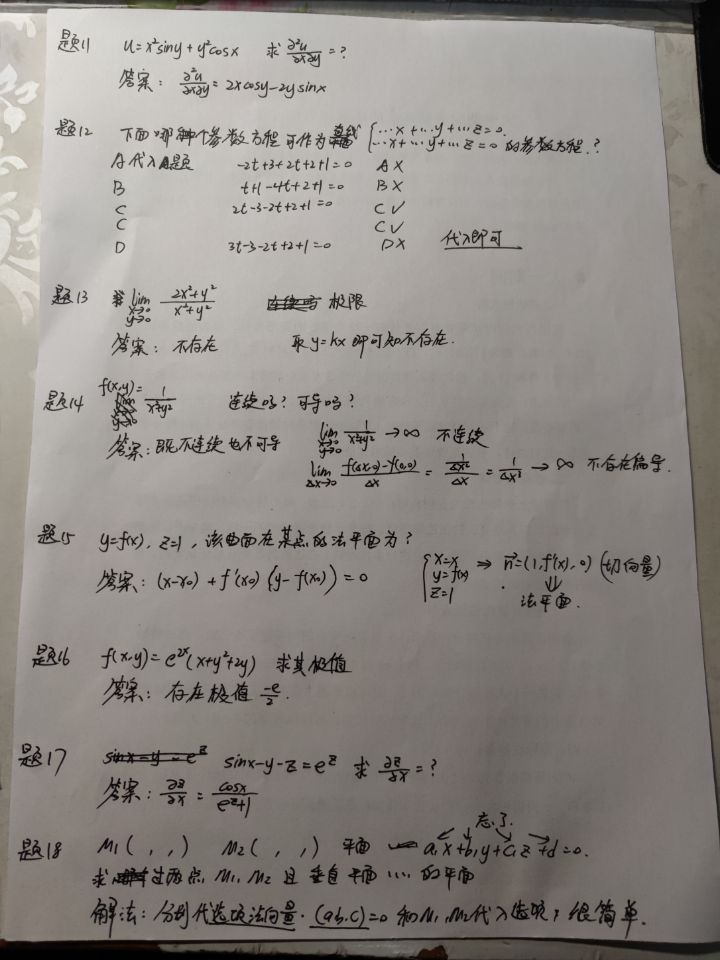 题11 u=x²siny+y²cosx 求 ∂²u/∂x∂y =?
答案: ∂²u/∂x∂y = 2xcosy-2ysinx
题12 下面哪种个参数方程可作为直线 {…x+…y+…z=0. …x+…y+…z=0 的参数方程.?
A代入A题 -2t+3+2t+2+1=0 A X
B t+1-4t+2+1=0 B X
C 2t-3-2t+2+1=0 C √
C C √
D 3t-3-2t+2+1=0 D X 代入即可
题13 lim x→0 y→0 (2x²+y²)/(x²+y²) 极限
答案: 不存在 取y=kx即可知不存在.
题14 f(x,y)= 1/(x²+y²) 连续吗? 可导吗?
答案: 既不连续也不可导 lim x→0 y→0 1/(x²+y²) →∞ 不连续
lim Δx→0 (f(Δx,0)-f(0,0))/Δx = (1/Δx²)/Δx = 1/Δx³ →∞ 不存在偏导.
题15 y=f(x), z=1, 该曲面在某点的法平面为?
答案: (x-x₀)+f'(x₀)(y-f(x₀))=0 {x=x y=f(x) z=1 ⇒ n⃗=(1,f'(x),0) (切向量)
⇓
法平面.
题16 f(x,y)=e²ˣ(x+y²+2y) 求其极值
答案: 存在极值 -e/2.
题17 sinx-y=e^z sinx-y-z=e^z 求 ∂z/∂x =?
答案: ∂z/∂x = cosx/(e^z+1)
忘了.
题18 M₁( , ,) M₂( , ,) 平面 a₁x+b₁y+c₁z+d=0.
求过两点M₁,M₂且垂直平面……的平面
解法: 分别代选项法向量·(a,b,c)=0 和M₁,M₂代入选项, 很简单.